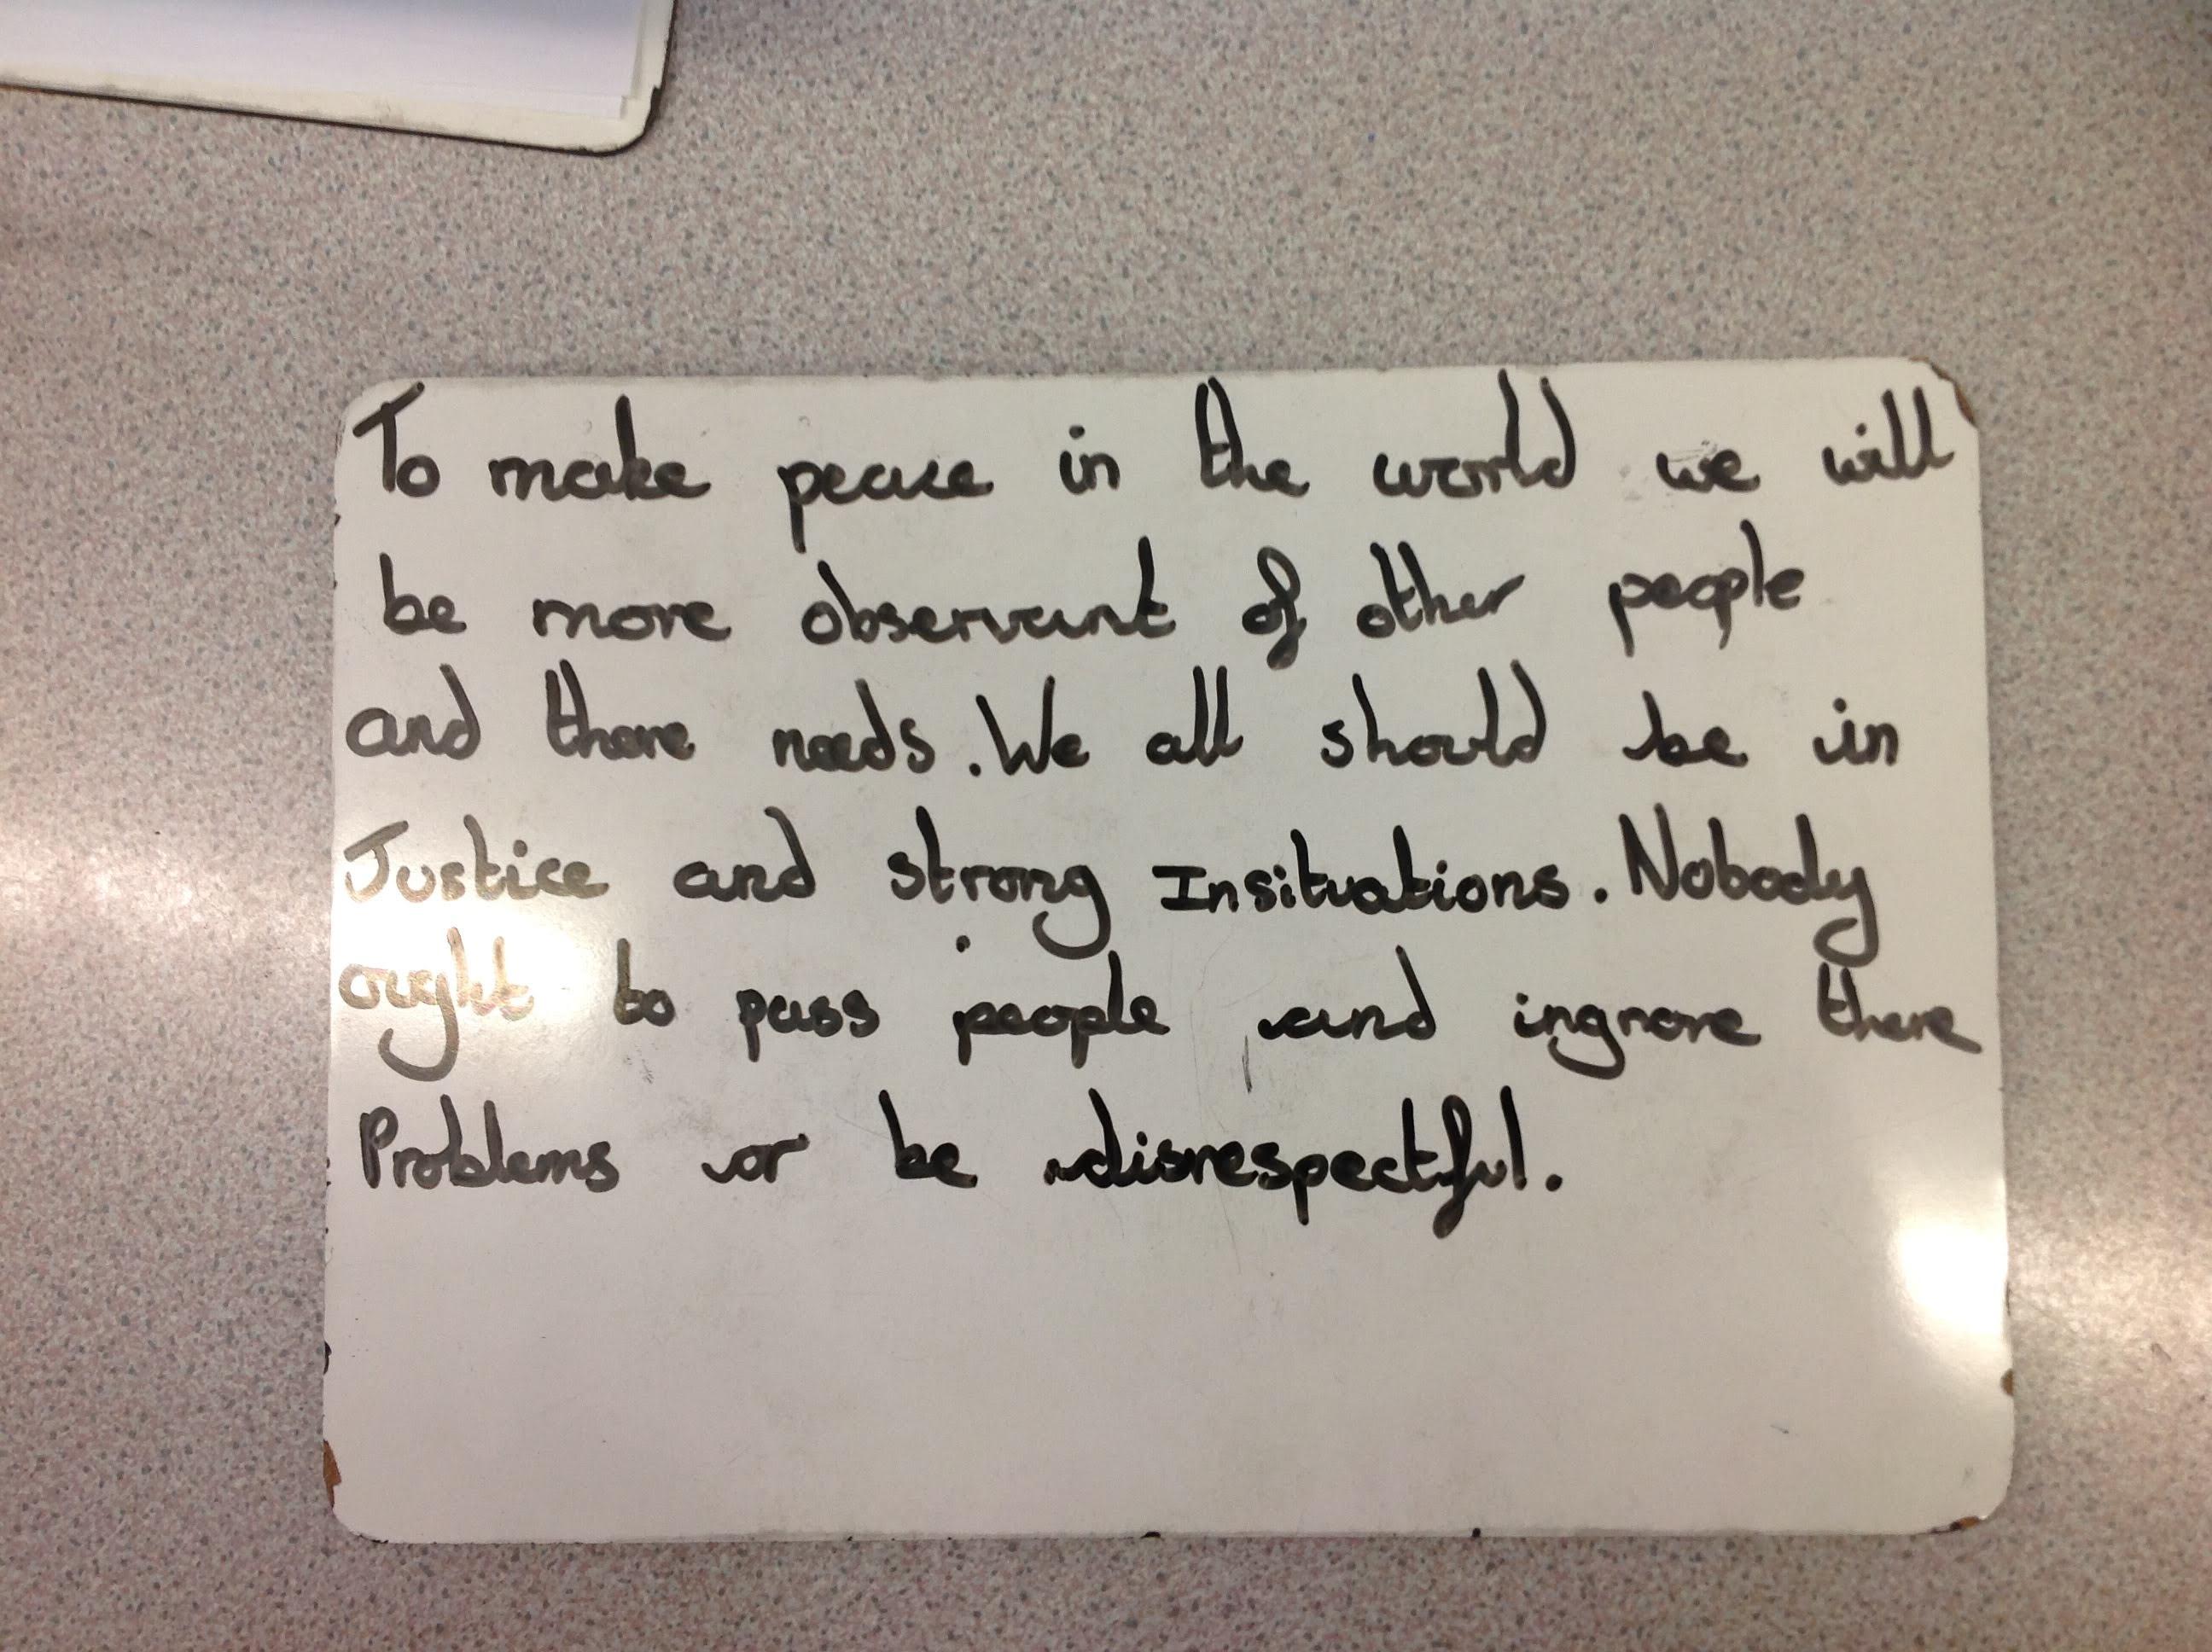 To make peace in the world we will
be more observant of other people
and there needs. We all should be in
Justice and strong Insituations. Nobody
ought to pass people and ingnore there
Problems or be disrespectful.